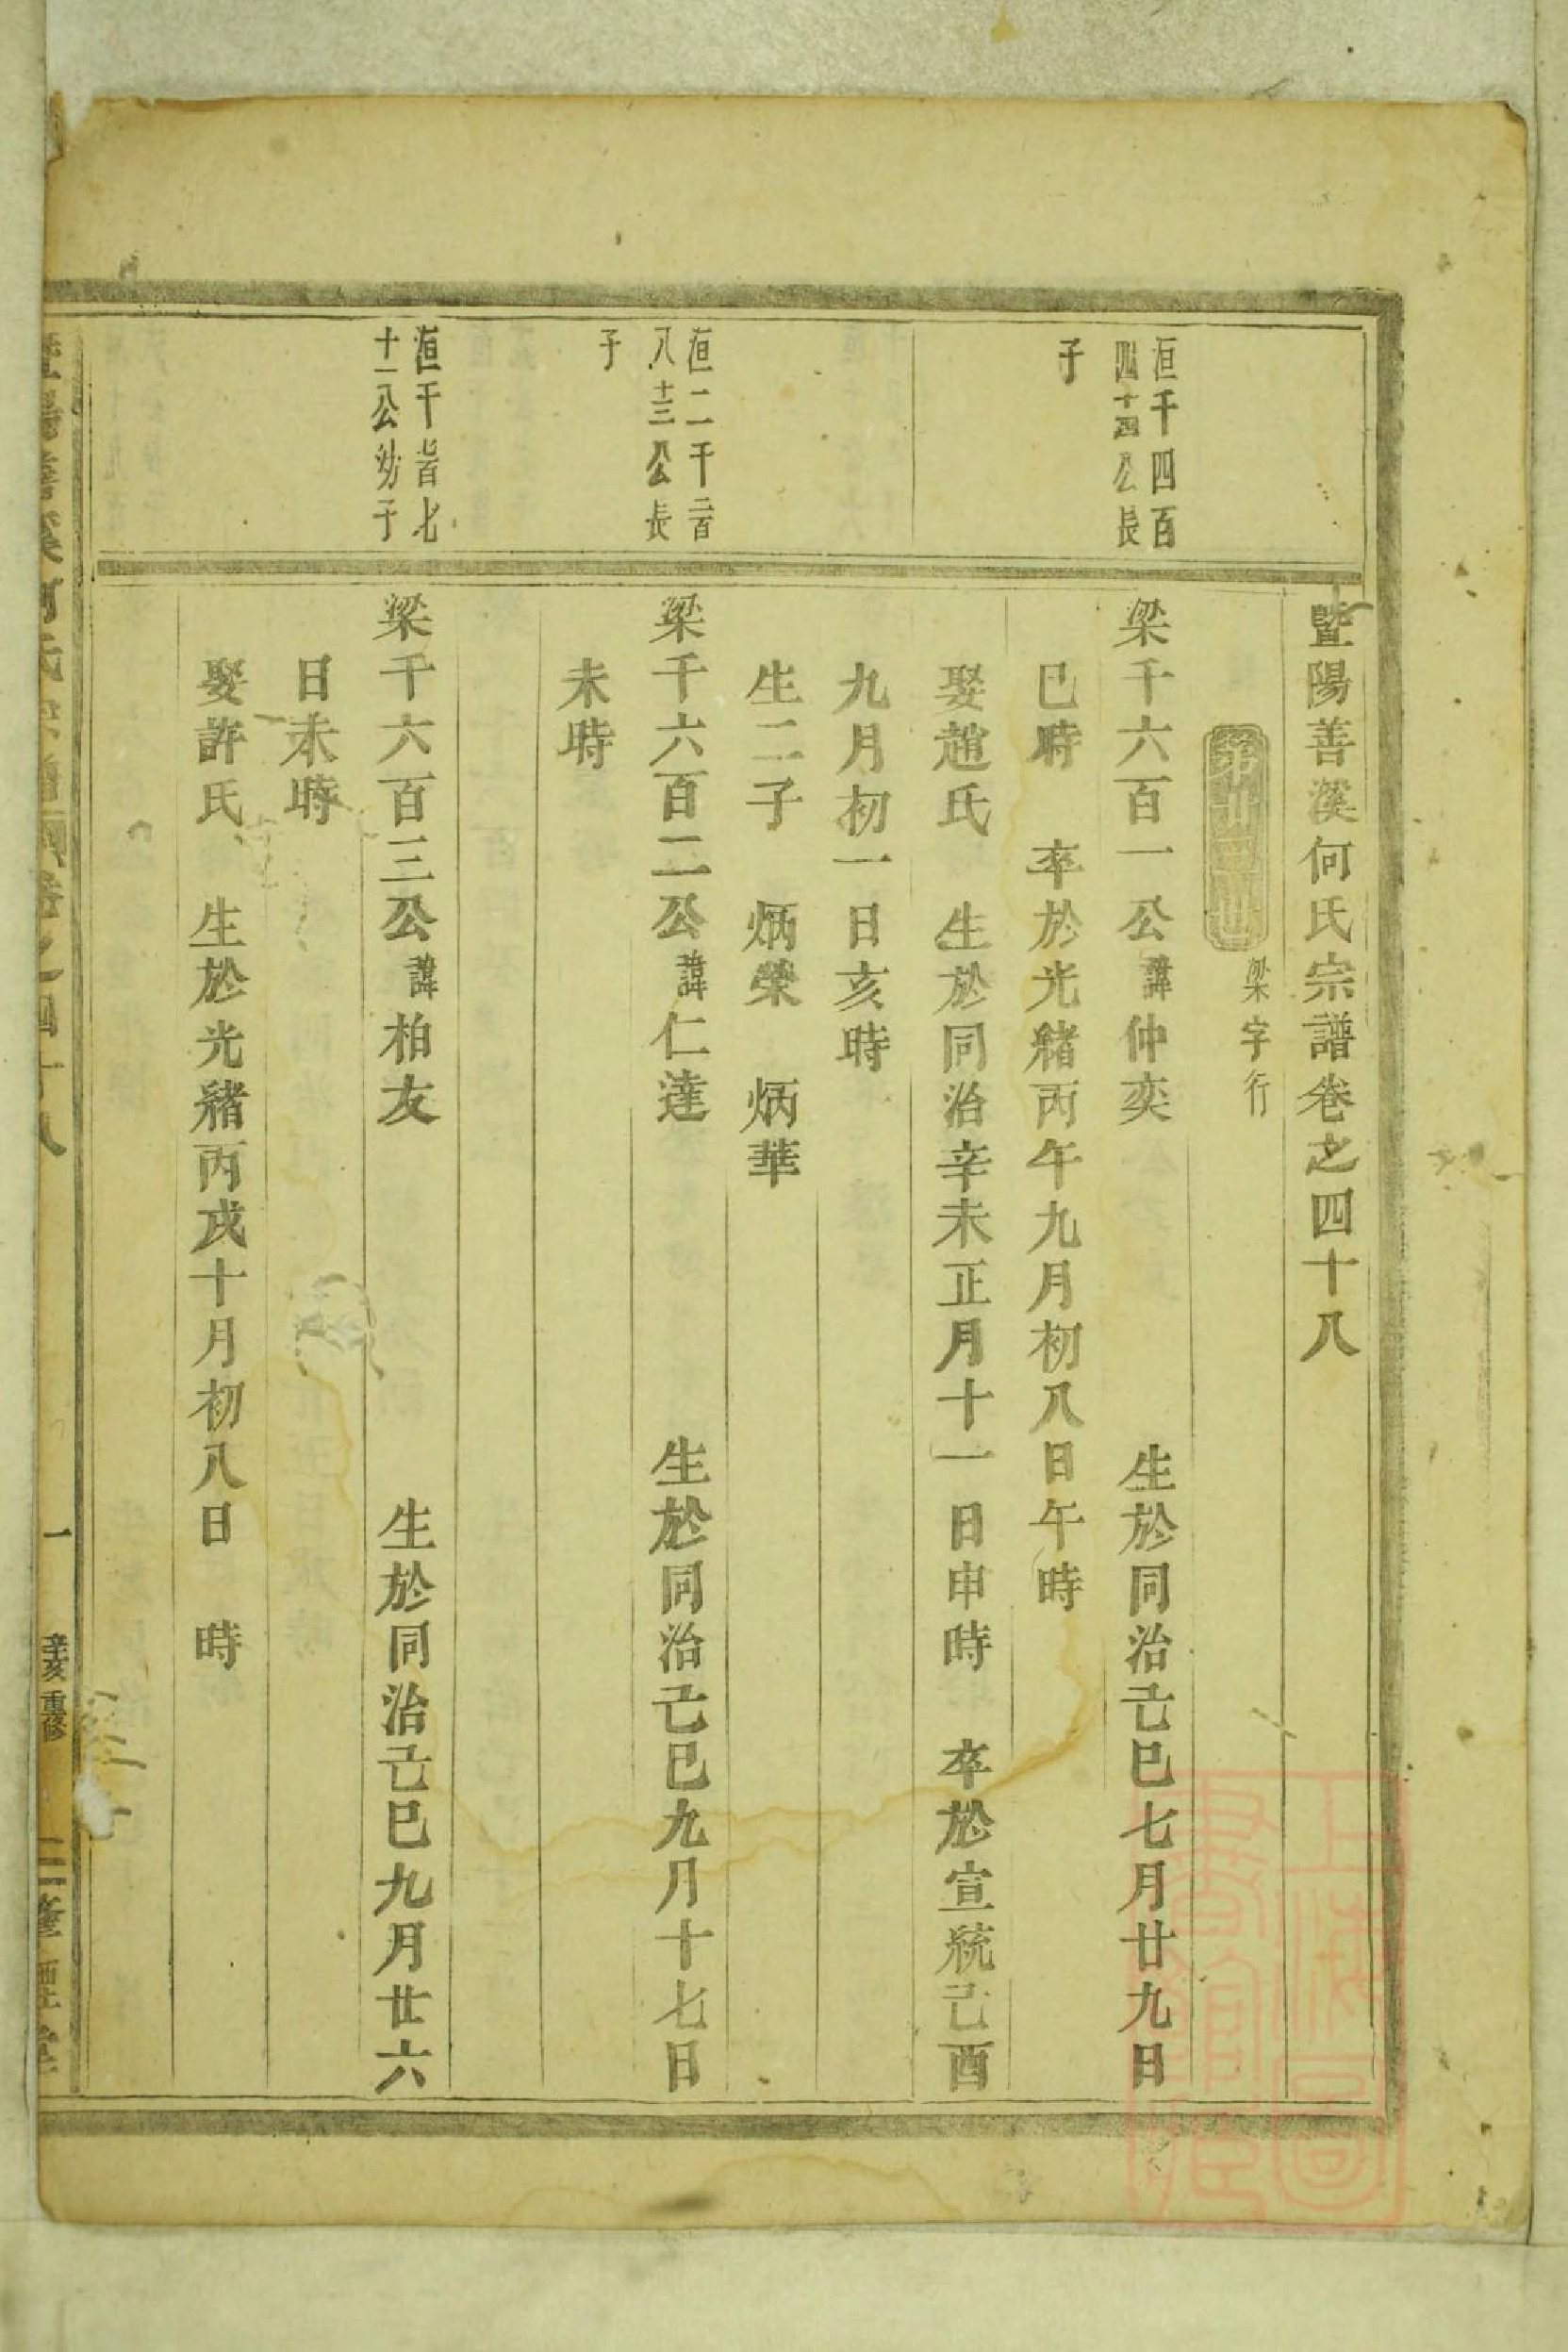 暨陽善溪何氏宗譜卷之四十八
梁字行
洹千四百
四十四公長
子
梁千六百一公諱仲奕　生於同治己巳七月廿九日
巳時　卒於光緒丙午九月初八日午時
娶趙氏　生於同治辛未正月十一日申時　卒於宣統己酉
九月初一日亥時
生二子　炳榮　炳華
洹二千二百
八十三公長
子
梁千六百二公諱仁達　生於同治己巳九月十七日
未時
洹千皆七
十一公幼子
梁千六百三公諱柏友　生於同治己巳九月廿六
日未時
娶許氏　生於光緒丙戌十月初八日　時
一
辛亥重修